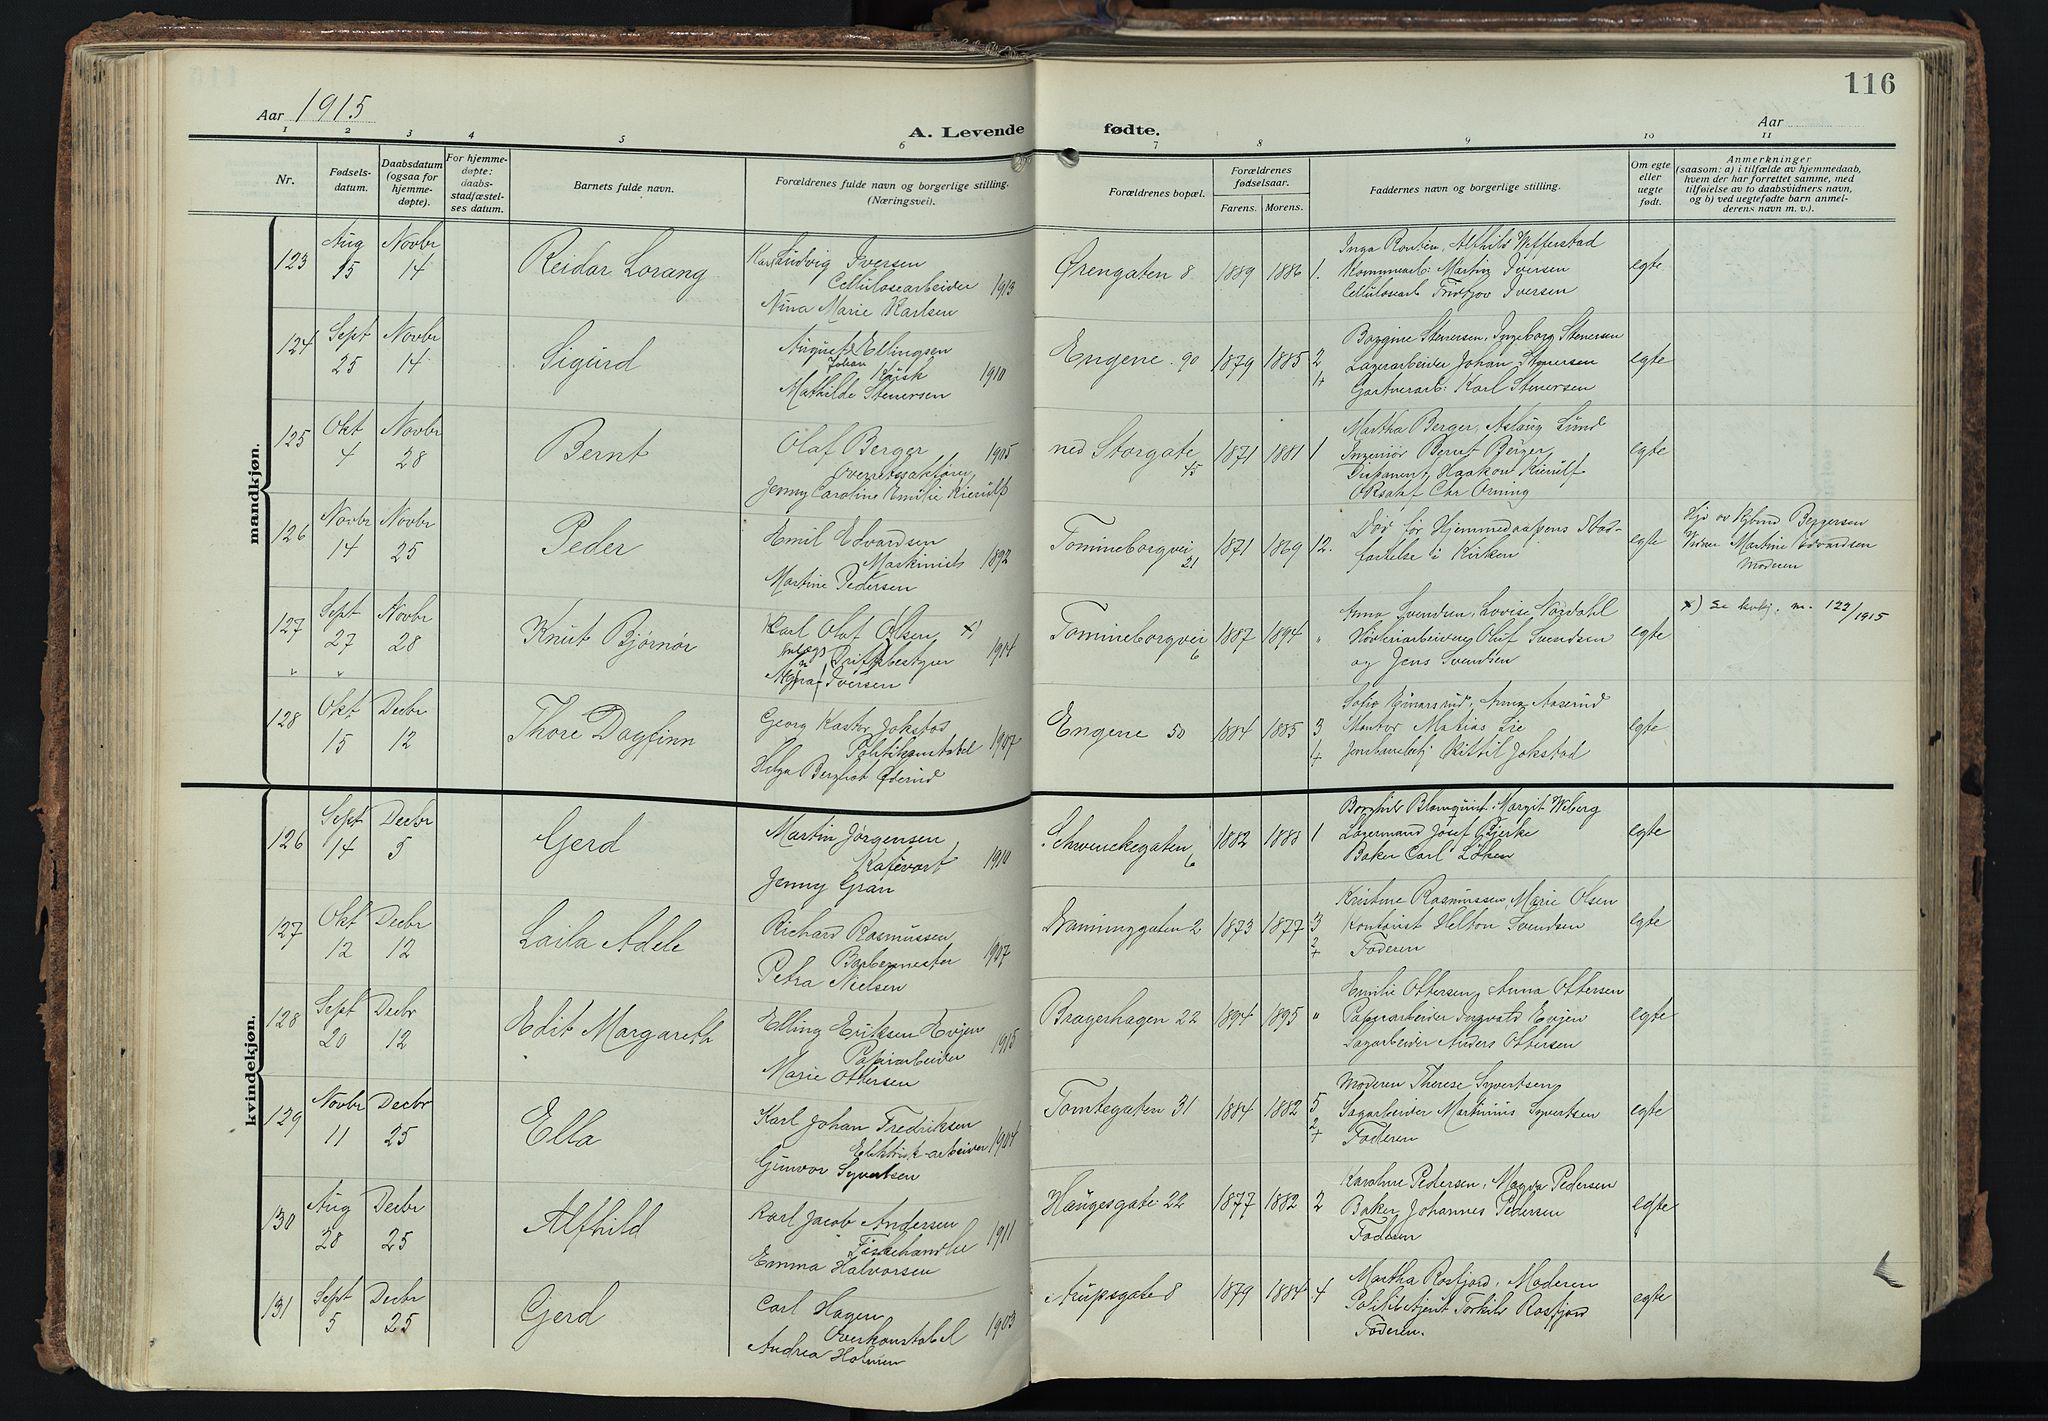 116
Aar 1915
A. Levende fødte.
Aar
1 2 3 4 5 6 7 8 9 10 11
Nr.
Fødsels-
datum.
Daabsdatum
(ogsaa for
hjemme-
døpte).
For hjemme-
døpte:
daabs-
stadfæstel-
ses datum.
Barnets fulde navn.
Forældrenes fulde navn og borgerlige stilling.
(Næringsvei).
Forældrenes bopæl.
Forældrenes
fødselsaar.
Farens. Morens.
Faddernes navn og borgerlige stilling.
Om egte
eller
uegte
født.
Anmerkninger
(saasom: a) i tilfælde av hjemmedaab,
hvem der har forrettet samme, med
tilføielse av to daabsvidners navn,
og b) ved uegtefødte barn anmel-
derens navn m. v.).
mandkjøn.
123
Aug
15
Novbr
14
Reidar Lorang
Karl Ludvig Iversen
Cellulosearbeider 1913
Nina Marie Karlsen
Ørengaten 8
1889 1886 1.
Inga Alfhild
Kommunearb: Martin Iversen
Cellulosearb Fridtjov Iversen
egte
124
Sept
25
Novbr
14
Sigurd
August Ellingsen
Johan Kusk 1910
Mathilde Stenersen
Engene 90
1879 1885 2
+
Borgine Stenersen, Ingeborg Stenersen
Lagerarbeider Johan Stenersen
Gartnerarb: Karl Stenersen
egte
125
Okt
4
Novbr
28
Bernt
Olaf Berger 1905
Overretssakfører
Jenny Caroline Emilie Kierulf
ned Storgate
45
1871 1881 1
Martha Berger, Aslaug Lund
Ingeniør Bernt Berger,
Disponent Haakon Kierulf
ORsakf Chr Orning
egte
126
Novbr
14
Novbr
25
Peder
Emil Edvardsen
Maskinist 1892
Martine Pedersen
Tomineborgvei
21
1871 1869 12.
Død før Hjemmedaapens Stad-
fæstelse i Kirken
egte
Hjd av Bergersen
Vidner Martine Edvardsen
Moderen
127
Sept
27
Novbr
28
Knut Bjørnør
Karl Olaf Olsen x)
Driftsbestyrer 1914
Iversen
Tomineborgvei
6
1887 1894 "
Anna Svendsen, Lovise Nordahl
Olaf Svendsen
og Jens Svendsen
egte
x) Se 122/1915
" "
128
Okt
15
Decbr
12
Thore Dagfinn
Georg Kastor Jokstad
Politikonstabel 1907
Helga Bergliot Øderud
Engene 50
1884 1885 3
+
Sofie Gunarsrud, Anna Aaserud
Kontor Matias Lie
Kittil Jokstad
egte
kvindekjøn.
126
Sept
14
Decbr
5
Gerd
Martin Jørgensen
Kafevert 1910
Jenny Gran
Schwenckegaten
6
1882 1883 1
Borghild Blomquist, Margit Weberg
Lagermand Josef Bjerke
Baker Carl Løken
egte
127
Okt
12
Decbr
12
Laila Adele
Richard Rasmussen
Barbermester 1907
Petra Nielsen
Danninggaten 2
1873 1877 3
2
+
Kristine Rasmussen, Marie Olsen
Kontorist Helton Svendsen
Faderen
egte
128
Sept
20
Decbr
12
Edit Margareth
Elling Eriksen Evjen
Papirarbeider 1915
Marie Ottersen
Bragerhagen 22
1894 1895 "
Emilie Ottersen, Anna Ottersen
Papirarbeider Ingvald Evjen
Sagarbeider Anders Ottersen
egte
129
Novbr
11
Decbr
25
Ella
Karl Johan Fredriksen
Elektrisk-arbeider 1904
Gunvor Syvertsen
Tomtegaten 31
1884 1882 5
2
+
Moderen Therese Syvertsen,
Sagarbeider Martinius Syvertsen
Faderen
egte
130
Aug
28
Decbr
25
Alfhild
Karl Jacob Andersen
Fiskehandler 1911
Emma Halvorsen
Haugesgate 22
1877 1882 2
Karoline Pedersen, Magda Pedersen
Baker Johannes Pedersen
Faderen
egte
131
Sept
5
Decbr
25
Gerd
Carl Hagen
Overkonstabel 1903
Andrea Holmen
Arupsgate 8
1879 1884 4
Martha Rosfjord, Moderen
Politibetjent Torkild Rosfjord
Faderen.
egte